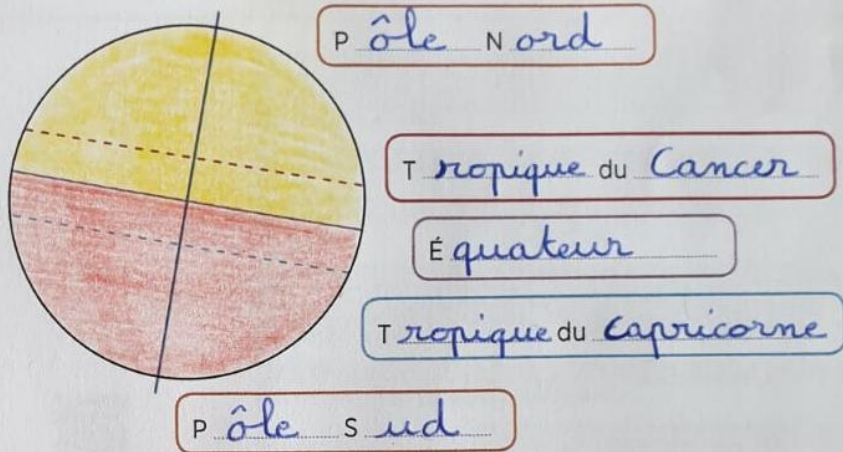 Pôle Nord
Tropique du Cancer
Équateur
Tropique du Capricorne
Pôle Sud